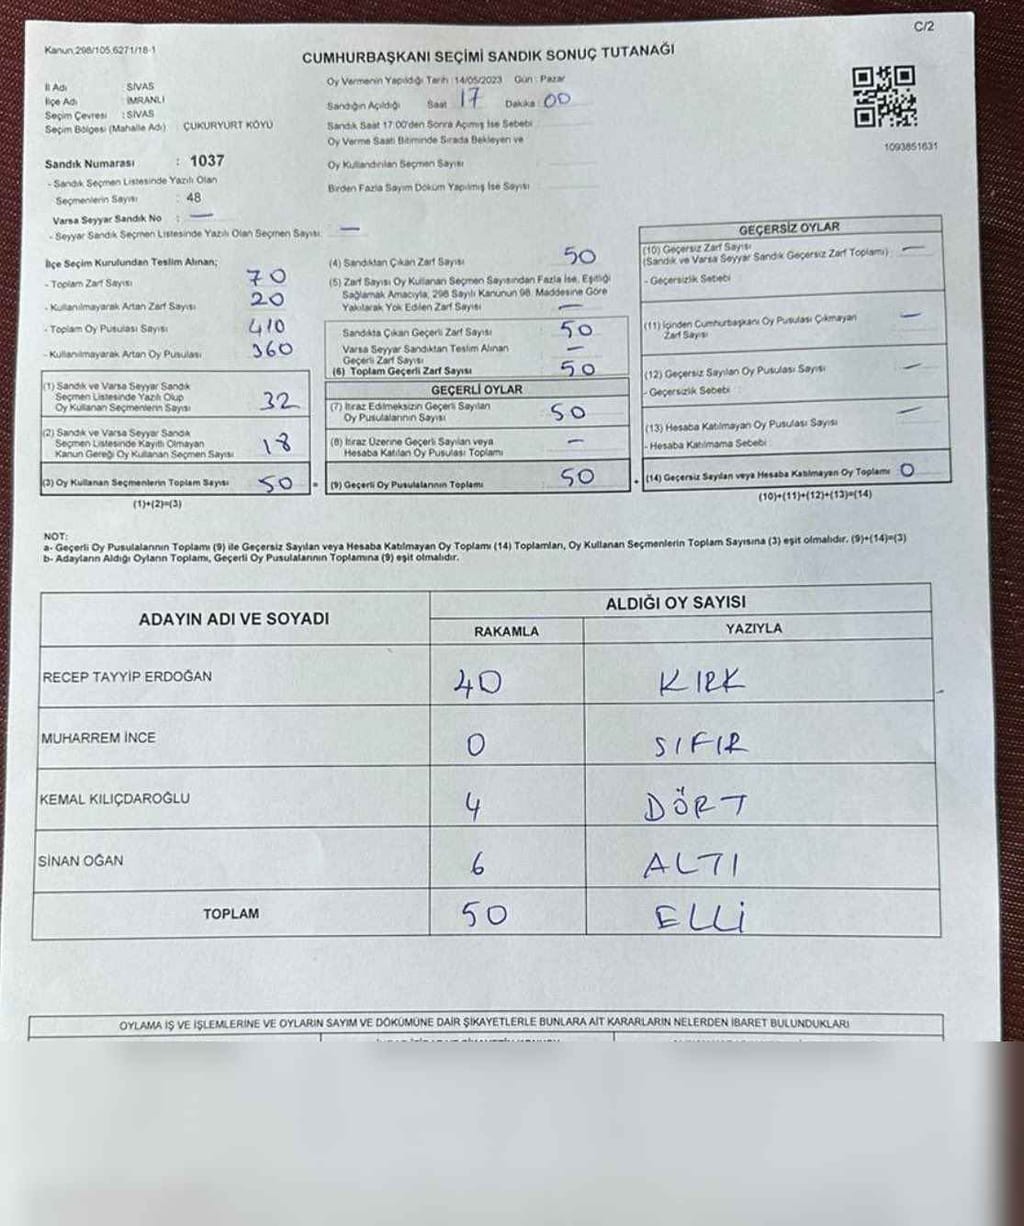 C/2
Kanun,298/105,6271/18-1
CUMHURBAŞKANI SEÇİMİ SANDIK SONUÇ TUTANAĞI
İl Adı SİVAS
İlçe Adı : İMRANLI
Seçim Çevresi : SİVAS
Seçim Bölgesi (Mahalle Adı) : ÇUKURYURT KÖYÜ
Oy Vermenin Yapıldığı Tarih : 14/05/2023 Gün : Pazar
Sandığın Açıldığı Saat : 17 Dakika : 00
Sandık Saat 17:00'den Sonra Açımış İse Sebebi
Oy Verme Saati Bitiminde Sırada Bekleyen ve
Oy Kullandırılan Seçmen Sayısı
Birden Fazla Sayım Döküm Yapılmış İse Sayısı
1093851631
Sandık Numarası : 1037
- Sandık Seçmen Listesinde Yazılı Olan
Seçmenlerin Sayısı : 48
Varsa Seyyar Sandık No : —
- Seyyar Sandık Seçmen Listesinde Yazılı Olan Seçmen Sayısı: —
İlçe Seçim Kurulundan Teslim Alınan;
- Toplam Zarf Sayısı 70
- Kullanılmayarak Artan Zarf Sayısı 20
- Toplam Oy Pusulası Sayısı 410
- Kullanılmayarak Artan Oy Pusulası 360
(1) Sandık ve Varsa Seyyar Sandık
Seçmen Listesinde Yazılı Olup
Oy Kullanan Seçmenlerin Sayısı 32
(2) Sandık ve Varsa Seyyar Sandık
Seçmen Listesinde Kayıtlı Olmayan
Kanun Gereği Oy Kullanan Seçmen Sayısı 18
(3) Oy Kullanan Seçmenlerin Toplam Sayısı 50 =
(1)+(2)=(3)
(4) Sandıktan Çıkan Zarf Sayısı 50
(5) Zarf Sayısı Oy Kullanan Seçmen Sayısından Fazla İse, Eşitliği
Sağlamak Amacıyla, 298 Sayılı Kanunun 98. Maddesine Göre
Yakılarak Yok Edilen Zarf Sayısı —
Sandıkta Çıkan Geçerli Zarf Sayısı 50
Varsa Seyyar Sandıktan Teslim Alınan
Geçerli Zarf Sayısı —
(6) Toplam Geçerli Zarf Sayısı 50
GEÇERLİ OYLAR
(7) İtiraz Edilmeksizin Geçerli Sayılan
Oy Pusulalarının Sayısı 50
(8) İtiraz Üzerine Geçerli Sayılan veya
Hesaba Katılan Oy Pusulası Toplamı —
(9) Geçerli Oy Pusulalarının Toplamı 50 +
GEÇERSİZ OYLAR
(10) Geçersiz Zarf Sayısı
(Sandık ve Varsa Seyyar Sandık Geçersiz Zarf Toplamı) : —
- Geçersizlik Sebebi
(11) İçinden Cumhurbaşkanı Oy Pusulası Çıkmayan
Zarf Sayısı —
(12) Geçersiz Sayılan Oy Pusulası Sayısı —
- Geçersizlik Sebebi :
(13) Hesaba Katılmayan Oy Pusulası Sayısı —
- Hesaba Katılmama Sebebi :
(14) Geçersiz Sayılan veya Hesaba Katılmayan Oy Toplamı 0
(10)+(11)+(12)+(13)=(14)
NOT:
a- Geçerli Oy Pusulalarının Toplamı (9) ile Geçersiz Sayılan veya Hesaba Katılmayan Oy Toplamı (14) Toplamları, Oy Kullanan Seçmenlerin Toplam Sayısına (3) eşit olmalıdır. (9)+(14)=(3)
b- Adayların Aldığı Oyların Toplamı, Geçerli Oy Pusulalarının Toplamına (9) eşit olmalıdır.
ADAYIN ADI VE SOYADI ALDIĞI OY SAYISI
RAKAMLA YAZIYLA
RECEP TAYYİP ERDOĞAN 40 KIRK
MUHARREM İNCE 0 SIFIR
KEMAL KILIÇDAROĞLU 4 DÖRT
SİNAN OĞAN 6 ALTI
TOPLAM 50 ELLİ
OYLAMA İŞ VE İŞLEMLERİNE VE OYLARIN SAYIM VE DÖKÜMÜNE DAİR ŞİKAYETLERLE BUNLARA AİT KARARLARIN NELERDEN İBARET BULUNDUKLARI